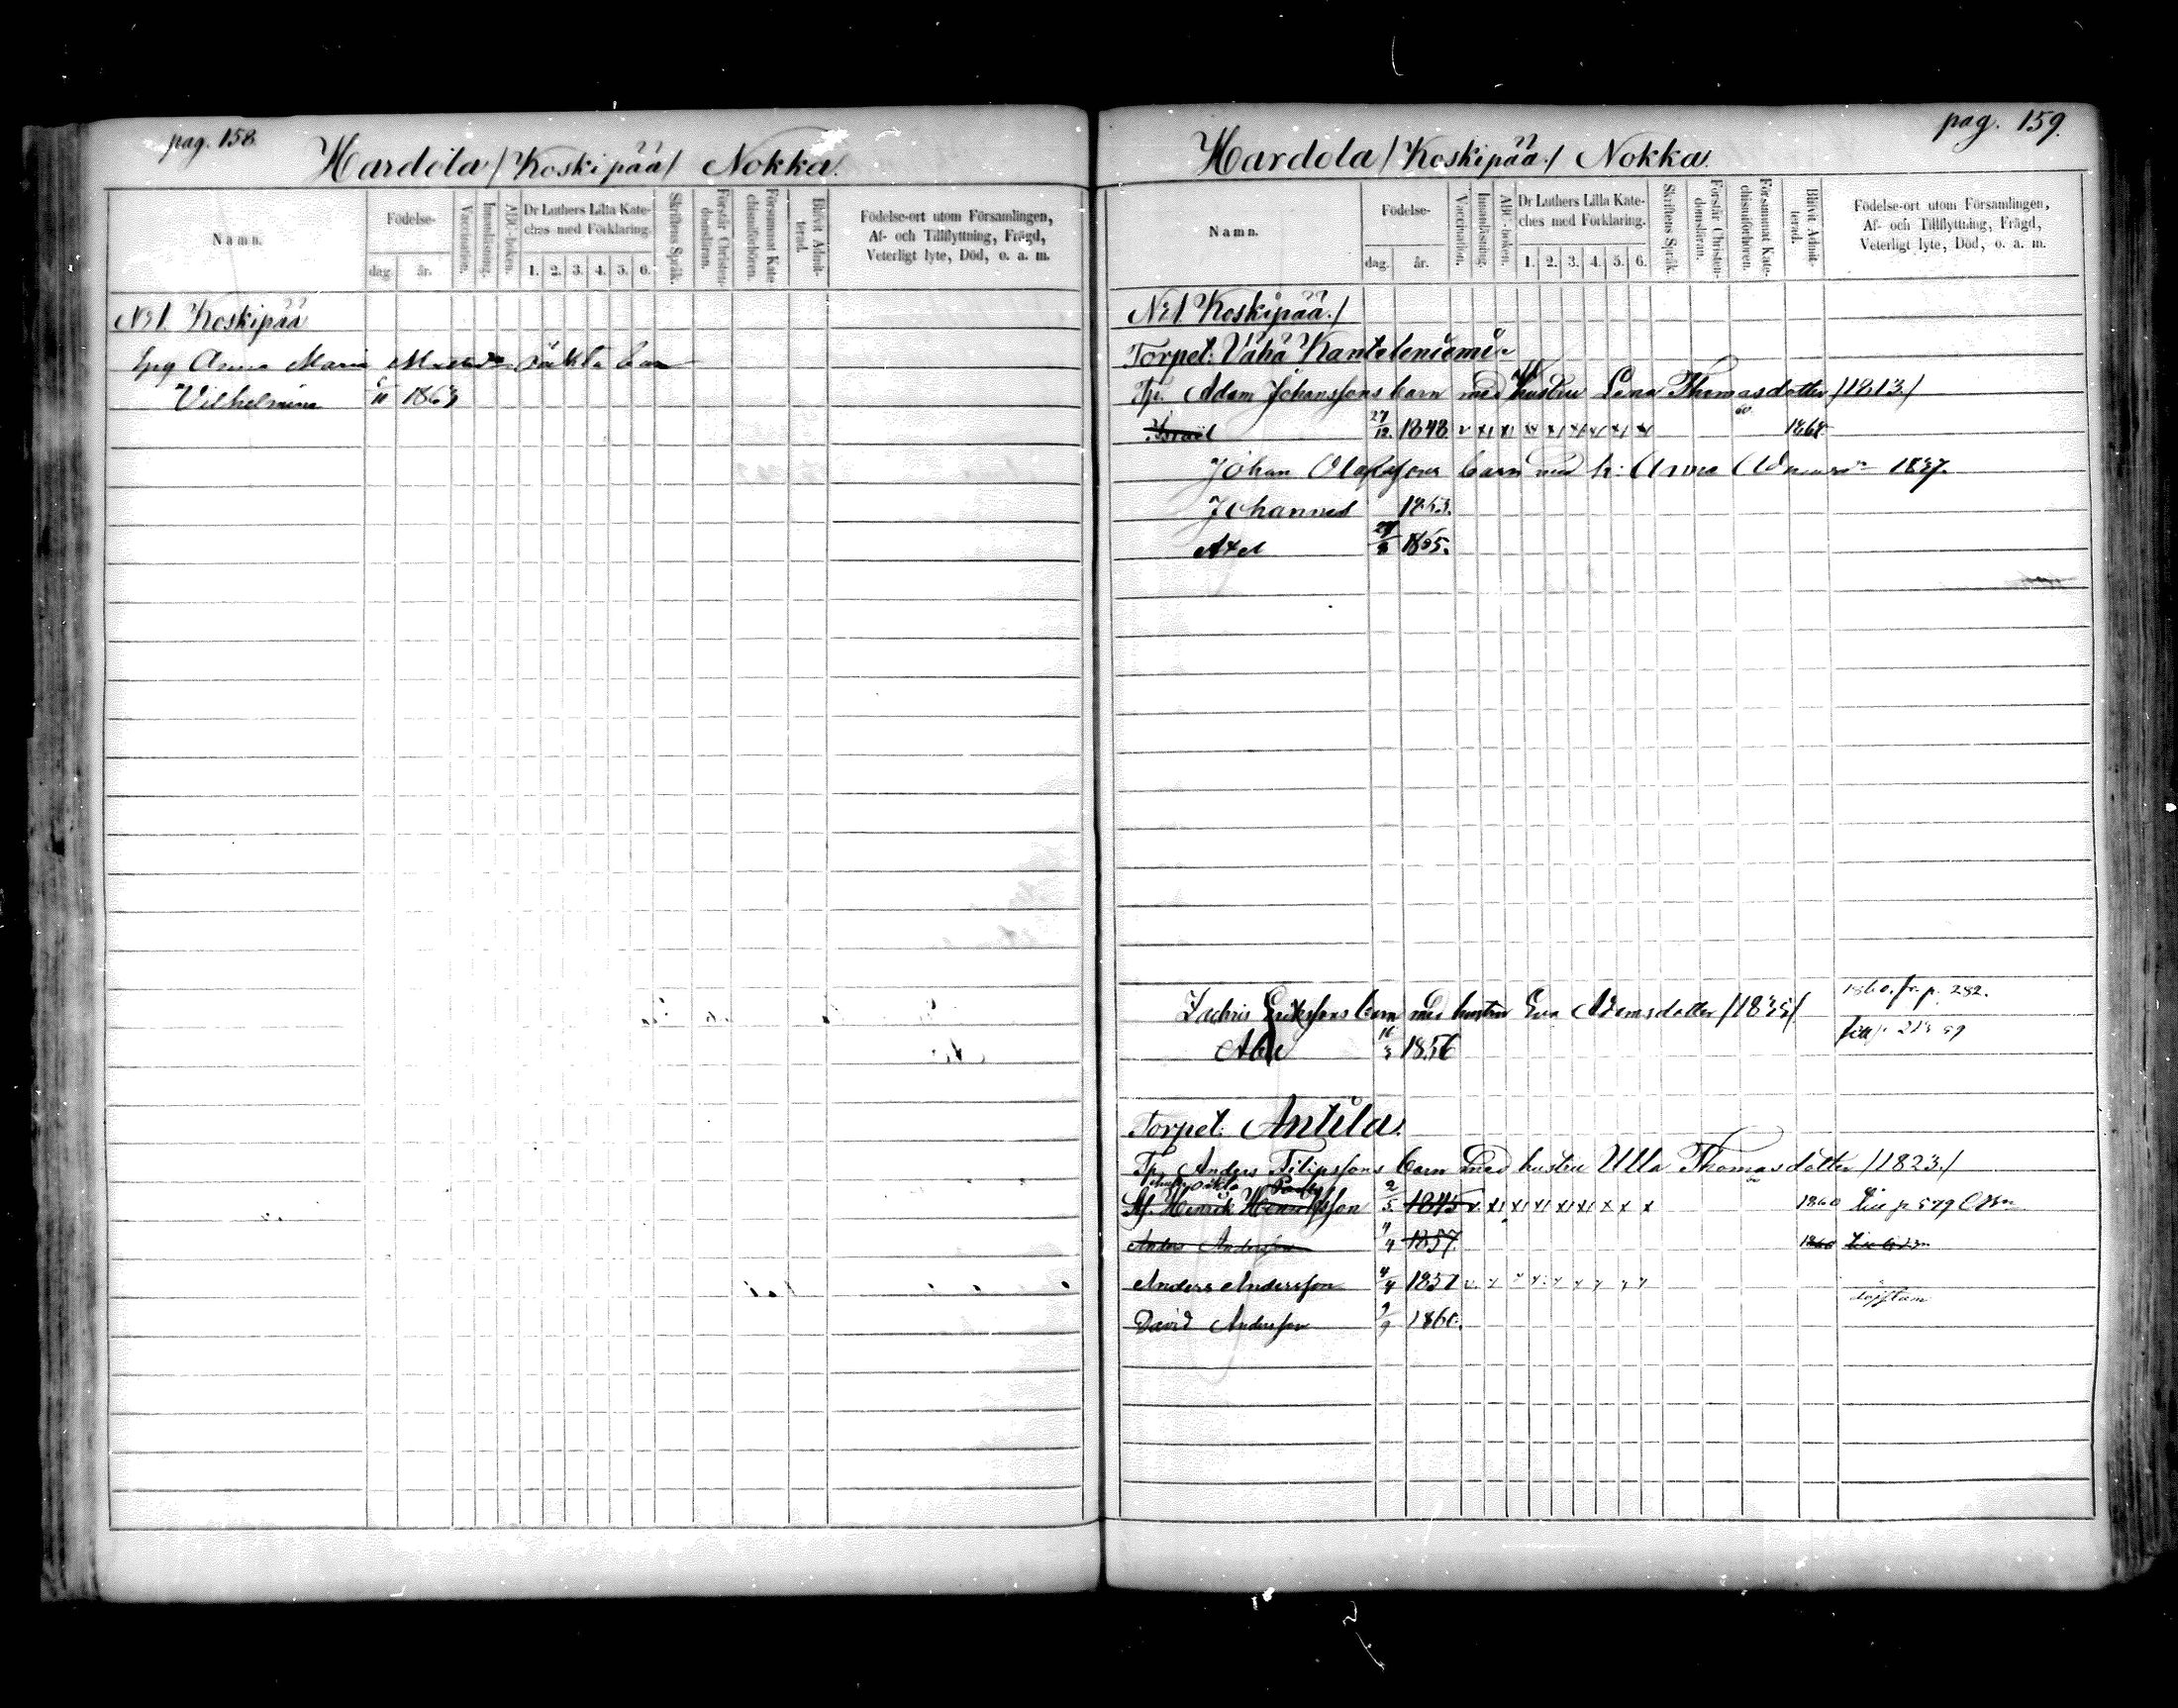 pag. 158.
Hardola / Koskipää / Nokka.
Namn.
Födelse-
dag.
år.
Vaccination.
Innanläsning.
ABC-boken.
Dr Luthers Lilla Kate-
ches med Förklaring.
1. 2. 3. 4. 5. 6.
Skriftens Språk.
Förstår Christen-
domsläran.
Försummat Kate-
chismiförhören.
Blifvit Admit-
terad.
Födelse-ort utom Församlingen,
Af- och Tillflyttning, Frägd,
Veterligt lyte, Död, o. a. m.
No 1. Koskipää
Anna Maria oäkta barn
Vilhelmina 11 1863
pag. 159.
Hardola / Koskipää / Nokka.
Namn.
Födelse-
dag.
år.
Vaccination.
Innanläsning.
ABC-boken.
Dr Luthers Lilla Kate-
ches med Förklaring.
1. 2. 3. 4. 5. 6.
Skriftens Språk.
Förstår Christen-
domsläran.
Försummat Kate-
chismiförhören.
Blifvit Admit-
terad.
Födelse-ort utom Församlingen,
Af- och Tillflyttning, Frägd,
Veterligt lyte, Död, o. a. m.
No 1. Koskipää /
Torpet: Vähä Kanteleniemi
Tp. Adam Johanssons barn med hustru Lena Thomasdotter /1813./
Israel 27/12. 1848
Johan Olofssons barn med h: Anna 1837.
Johannes 1863.
Axel 1865.
1860. fr. p. 282.
Zachris Erikssons barn med hustru Eva Adamsdotter
Abel 1856
Torpet: Antila.
Tp. Anders Filipssons barn med hustru Ulla Thomasdotter /1823./
oäkta
Henrik Henriksson 2/5. 1845 1860
Anders Andersson 1857
Anders Andersson 4/4 1857
David Andersson 1860.